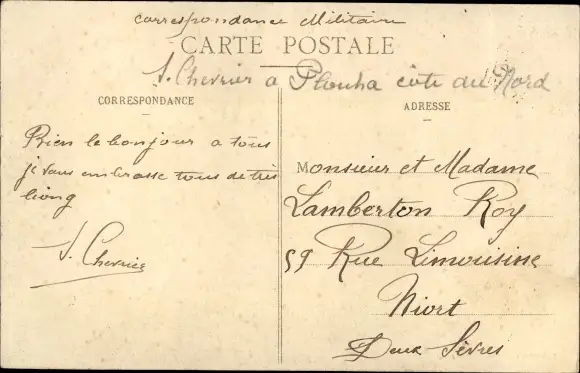 correspondance Militaire
CARTE POSTALE
J. Chevrier a Plouha côte du Nord
CORRESPONDANCE
ADRESSE
Bien le bonjour a tous
je vous embrasse tous de très
loing
J. Chevrier
Monsieur et Madame
Lamberton Roy
59 Rue Limousine
Niort
Deux-Sèvres